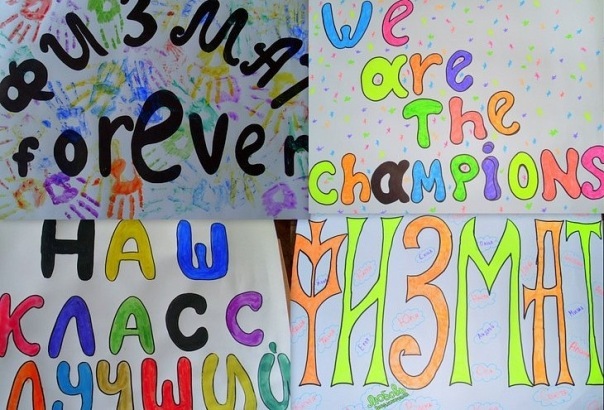 ФИЗМАТ
forever
We
are
The
chaмpions
НАШ
КЛАСС
ЛУЧШИЙ
ФИЗМАТ